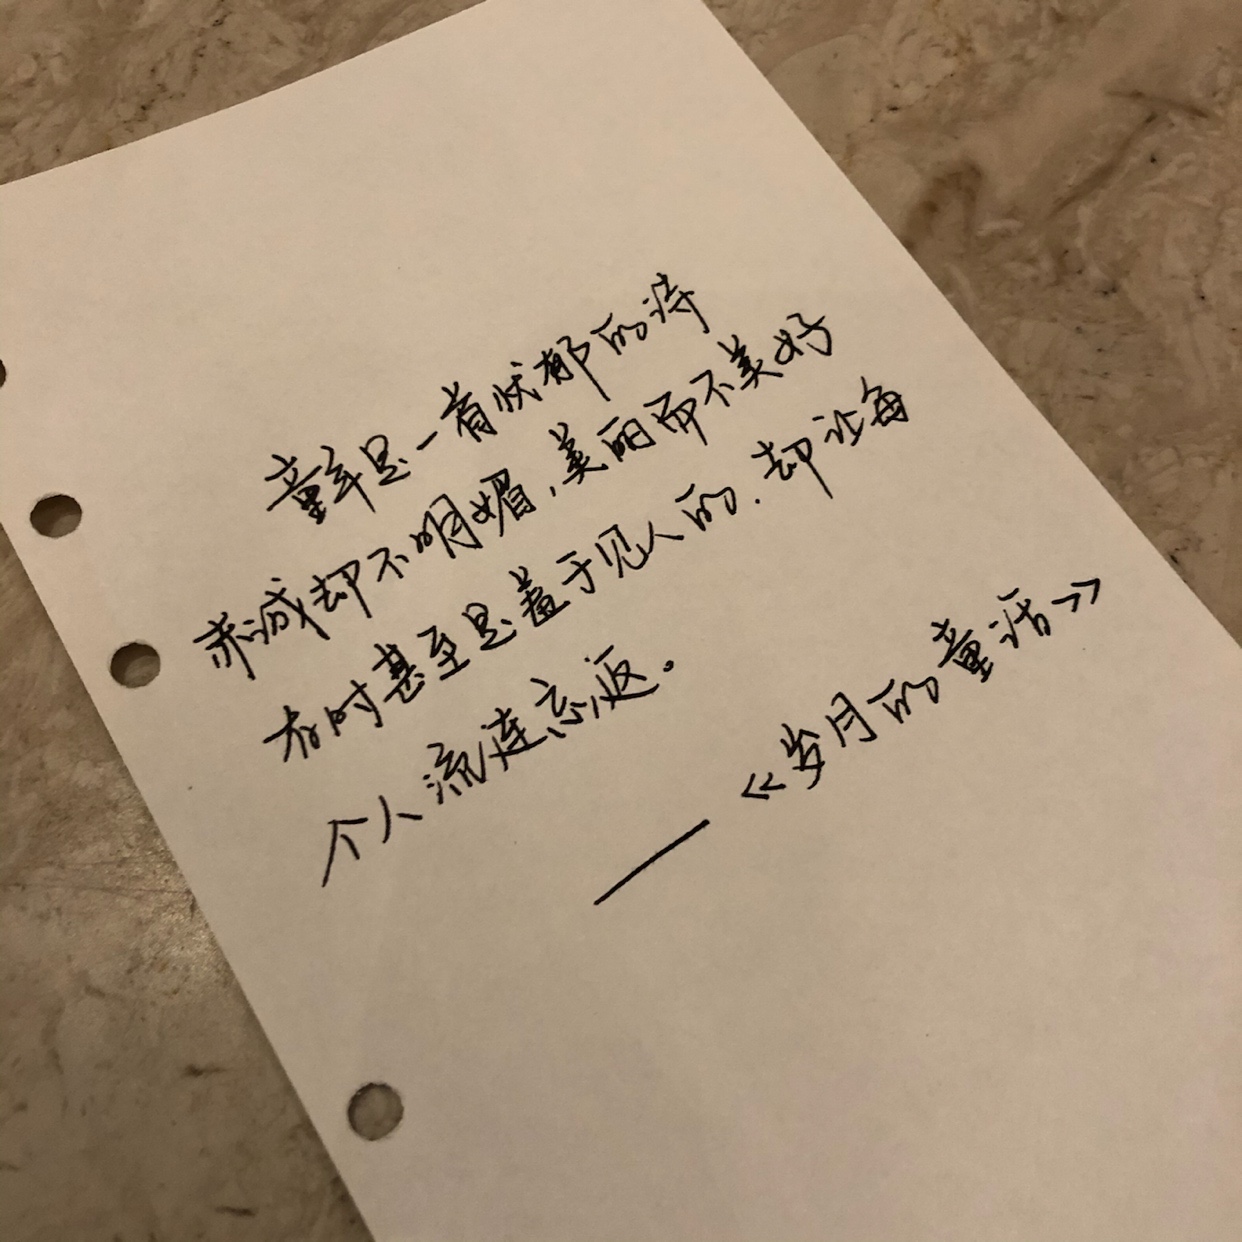 童年是一首忧郁的诗
赤诚却不明媚，美丽而不美好
有时甚至是羞于见人的．却让每
个人流连忘返。
——《岁月的童话》